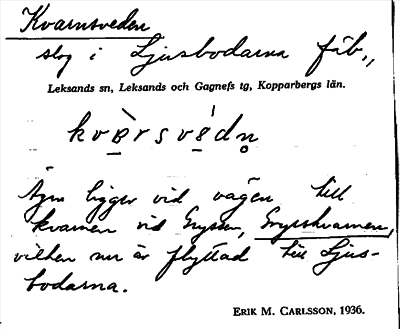 Kvarnsveden
slog i Ljusbodarna fäb.,
Leksands sn, Leksands och Gagnefs tg, Kopparbergs län.
ligger vid vägen till
kvarnen vid Gryssen, Grysskvarnen,
vilken nu är flyttad till Ljus-
bodarna.
ERIK M. CARLSSON, 1936.